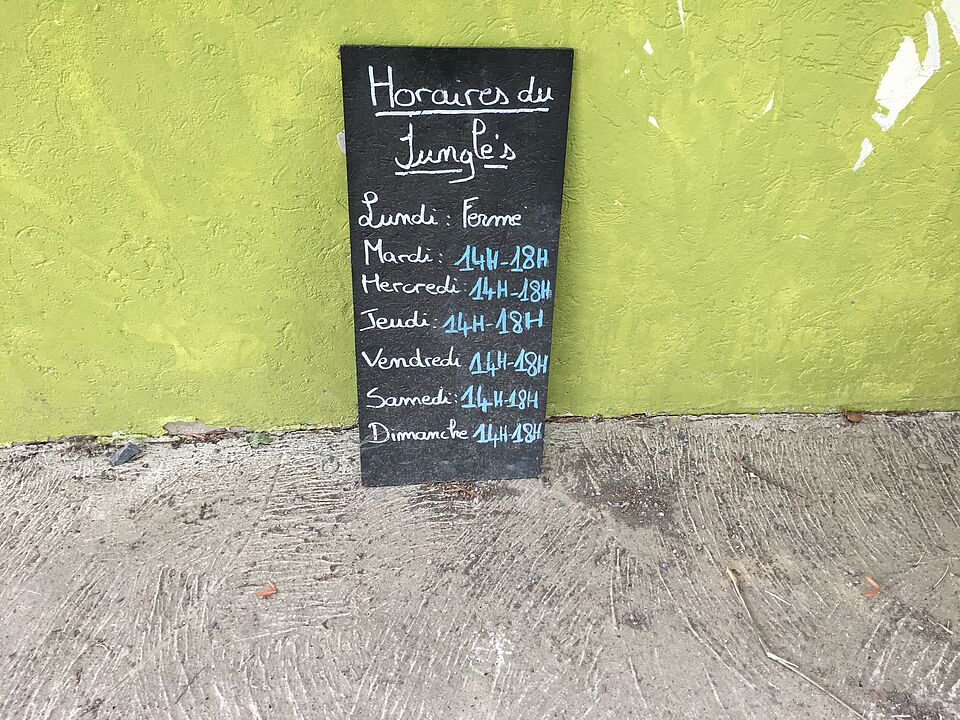 Horaires du
Jungle's
Lundi : Fermé
Mardi : 14H-18H
Mercredi : 14H-18H
Jeudi : 14H-18H
Vendredi 14H-18H
Samedi : 14H-18H
Dimanche 14H-18H